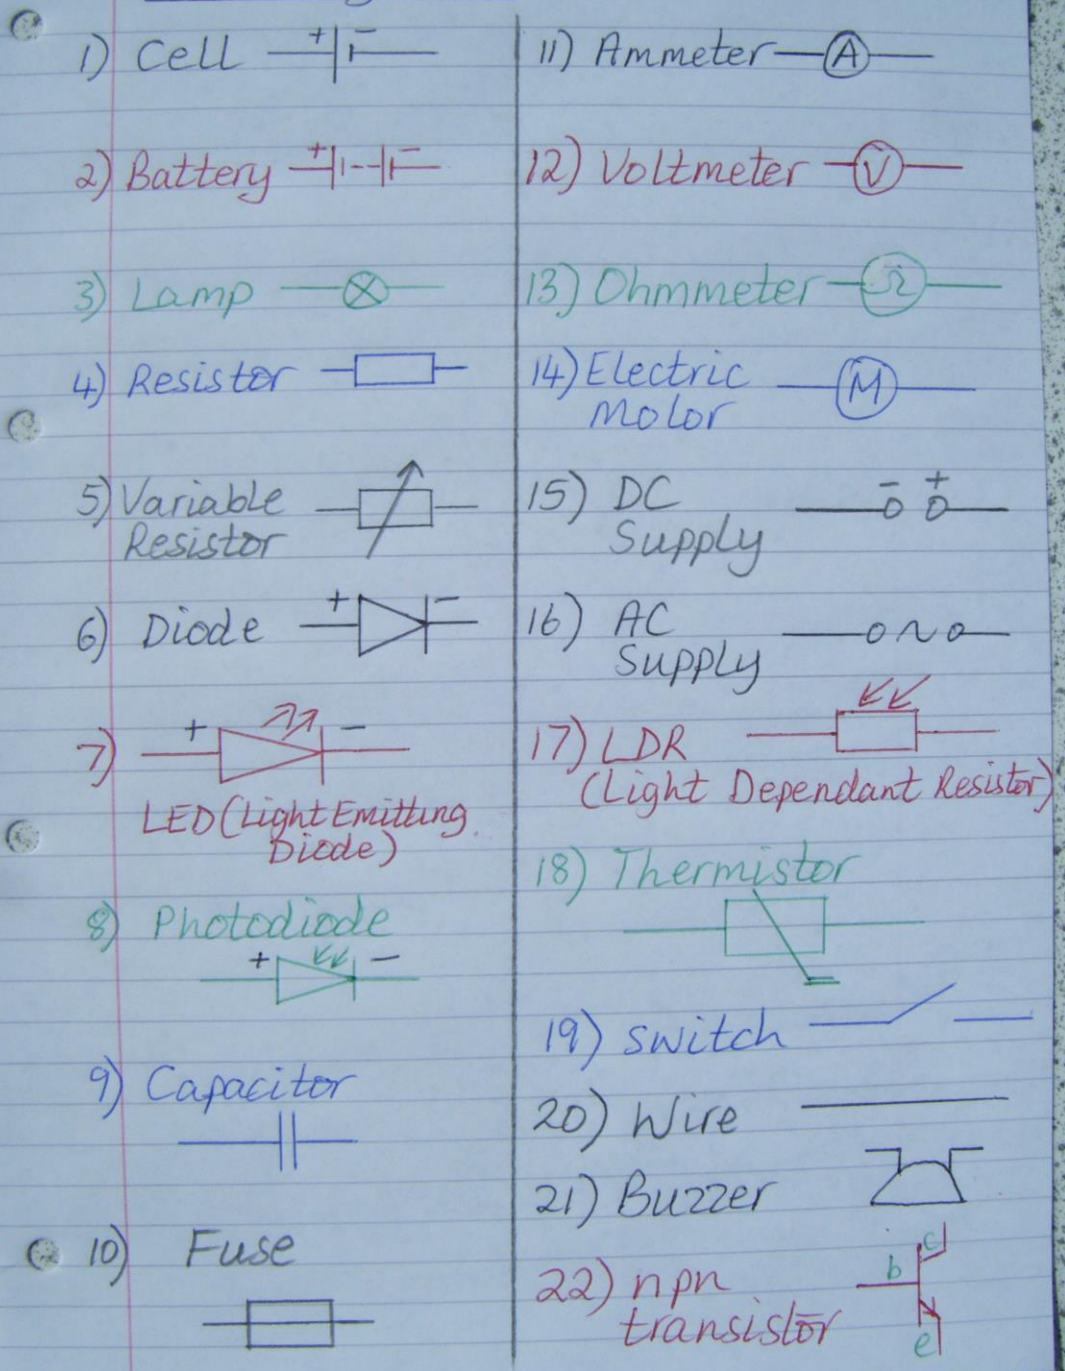 1) Cell + -
2) Battery + -
3) Lamp
4) Resistor
5) Variable
Resistor
6) Diode + -
7) + -
LED (Light Emitting
Diode)
8) Photodiode
+ -
9) Capacitor
10) Fuse
11) Ammeter A
12) Voltmeter V
13) Ohmmeter Ω
14) Electric M
Motor
15) DC - +
Supply
16) AC ~
Supply
17) LDR
(Light Dependant Resistor)
18) Thermistor
19) Switch
20) Wire
21) Buzzer
22) npn b c
transistor e